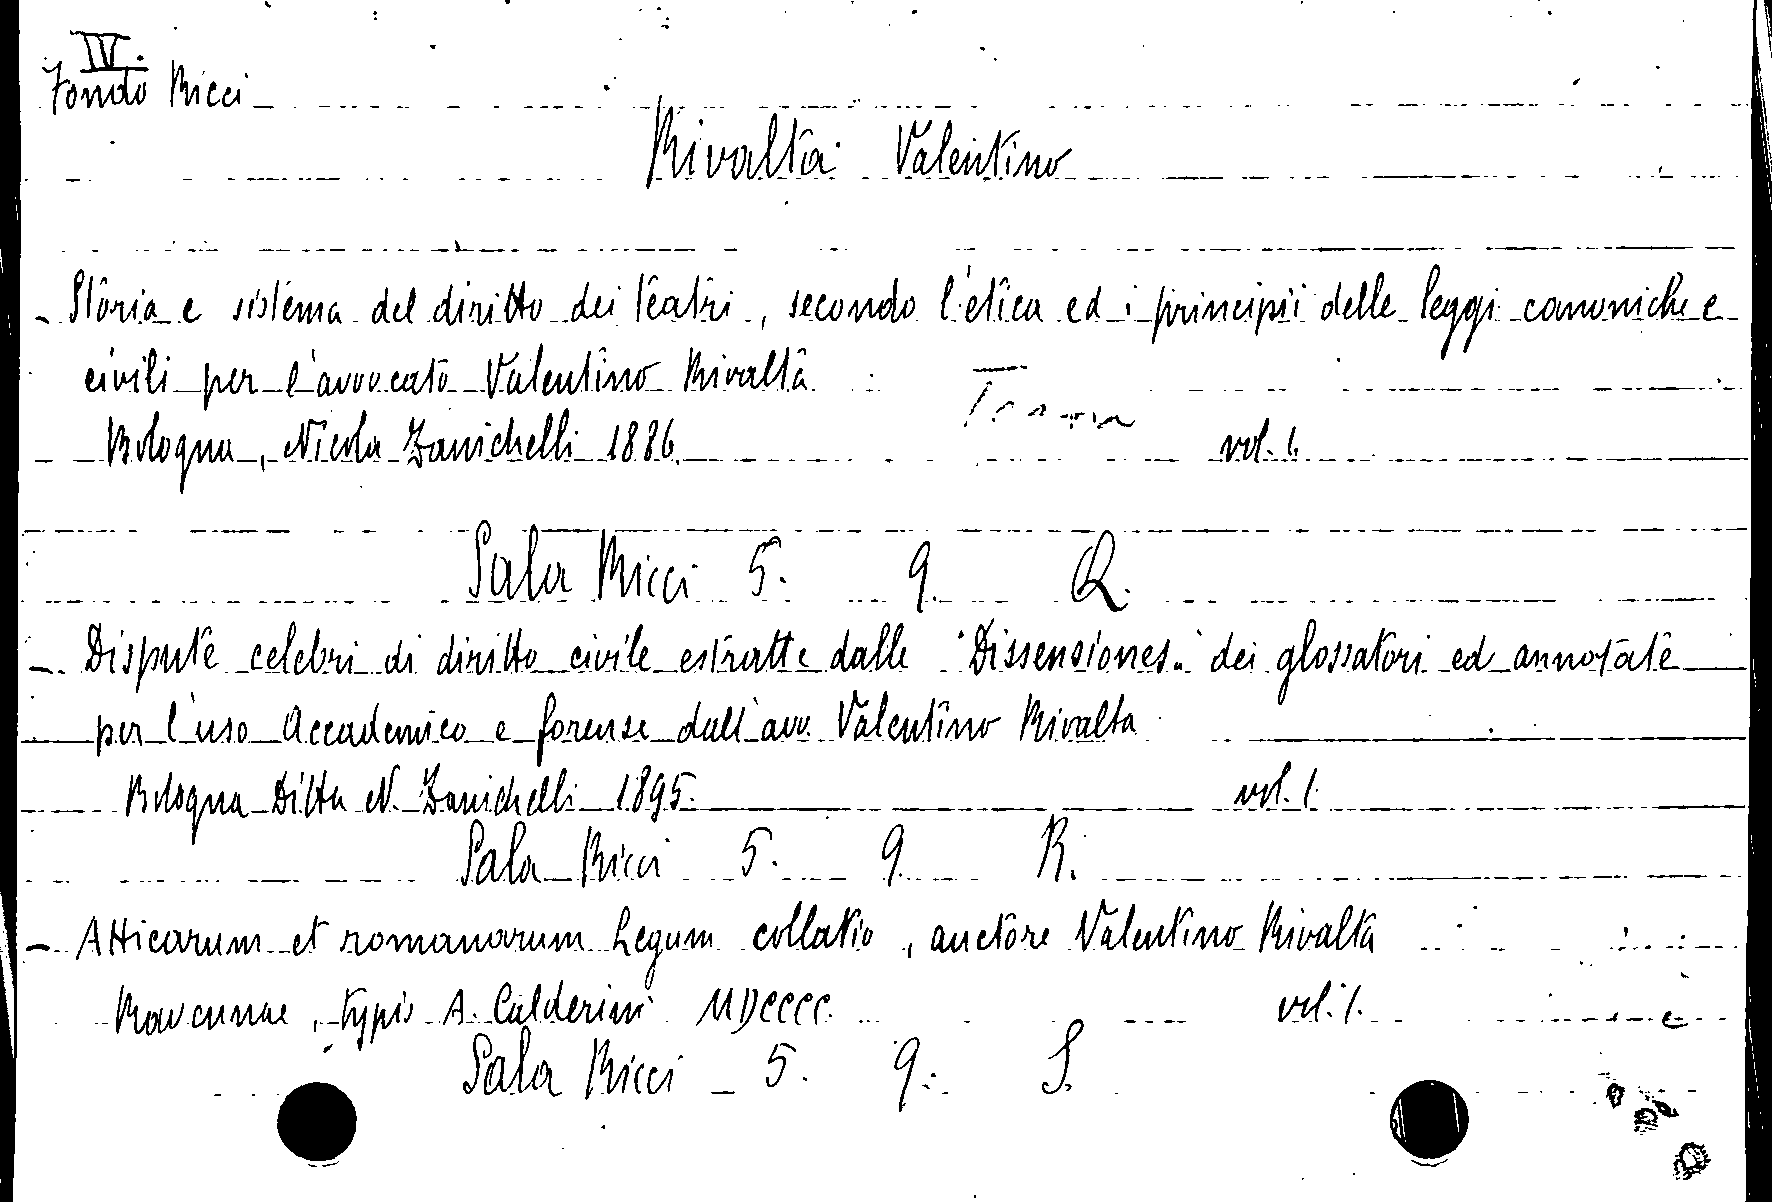 IV.
Fondo Ricci
Rivalta Valentino
- Storia e sistema del diritto dei teatri, secondo l'etica ed i principii delle leggi canoniche e
civili per l'avvocato Valentino Rivalta
Bologna, Nicola Zanichelli 1886. vol. 1.
Sala Ricci 5. 9. Q.
- Dispute celebri di diritto civile estratte dalle "Dissensiones" dei glossatori ed annotate
per l'uso Accademico e forense dall'avv. Valentino Rivalta
Bologna Ditta N. Zanichelli 1895. vol. 1.
Sala Ricci 5. 9. R.
- Atticarum et romanarum Legum collatio, auctore Valentino Rivalta
Ravennae, typis A. Calderini MDCCCC. vol. 1.
Sala Ricci 5. 9. S.